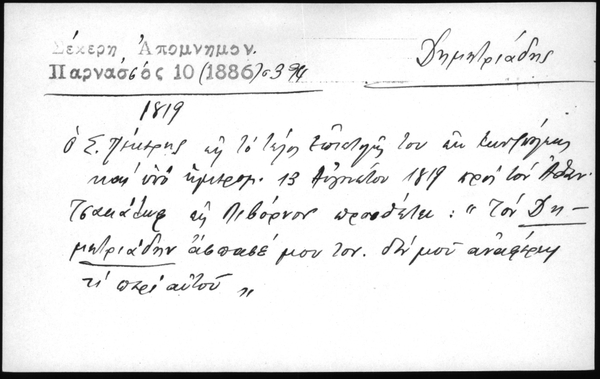 Σέκερη Ἀπομνημον.
Παρνασσός 10 (1886) σ 394
Δημητριάδης
1819
ὁ Σ. εἰς τὸ τέλος ἐπιστολῆς του ἐκ
καὶ ὑπὸ ἡμερομ. 13 Αὐγούστου 1819 πρὸς τὸν Ἀθαν.
Τσακάλωφ εἰς Λιβόρνον προσθέτει : "Τὸν Δη-
μητριάδην ἀσπασέ μου τον. δέν μοῦ ἀναφέρεις
τί περὶ αὐτοῦ "